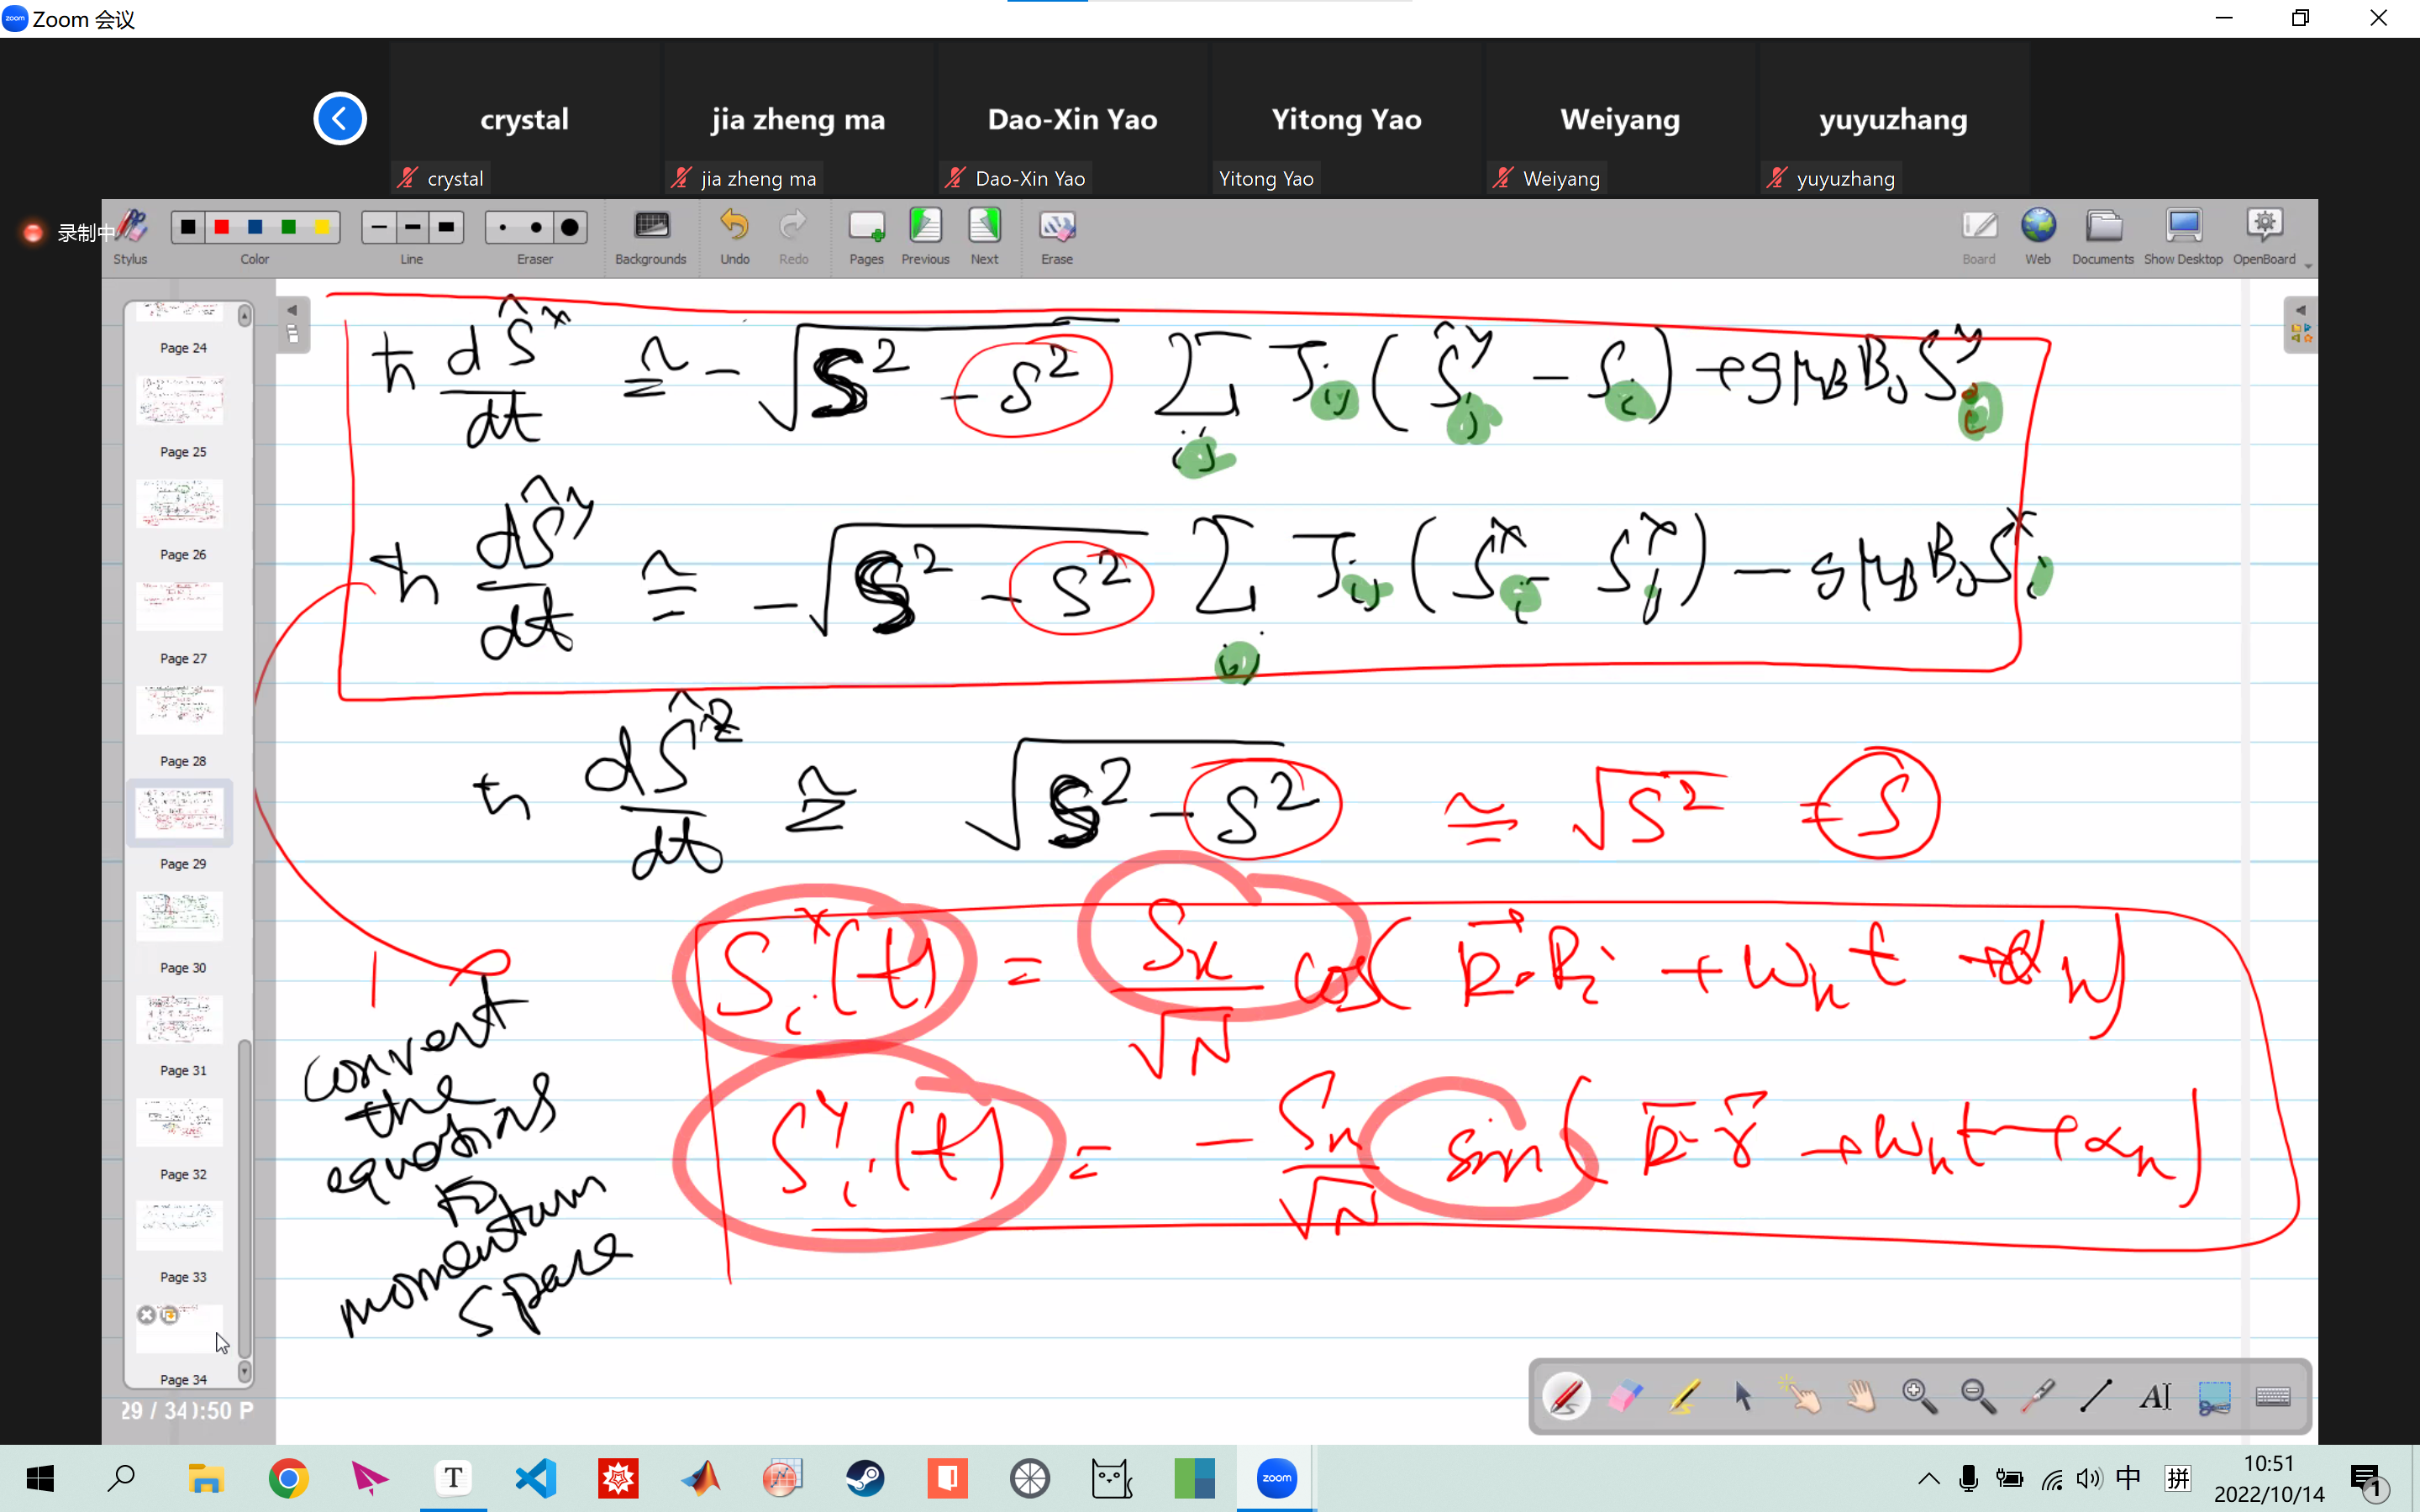 Zoom 会议
crystal
jia zheng ma
Dao-Xin Yao
Yitong Yao
Weiyang
yuyuzhang
crystal
jia zheng ma
Dao-Xin Yao
Yitong Yao
Weiyang
yuyuzhang
录制中
Stylus
Color
Line
Eraser
Backgrounds
Undo
Redo
Pages
Previous
Next
Erase
Board
Web
Documents
Show Desktop
OpenBoard
Page 24
Page 25
Page 26
Page 27
Page 28
Page 29
Page 30
Page 31
Page 32
Page 33
Page 34
29 / 34
:50 P
ħ dŜ^x/dt ≅ - √(S² - s²) Σ_ij J_ij (Ŝ_j^y - S_i) + gμ_B B_0 S_i^y
ħ dŜ^y/dt ≅ - √(S² - s²) Σ_ij J_ij (S_i^x - S_j^x) - gμ_B B_0 S_i^x
ħ dŜ^z/dt ≅ √(S² - s²) ≅ √S² = S
S_i^x(t) = S_k/√N cos(k⃗·R_i + ω_k t + α_k)
S_i^y(t) = - S_k/√N sin(k⃗·r⃗ + ω_k t + α_k)
convert
the
equations
to
momentum
space
zoom
中
拼
10:51
2022/10/14
1